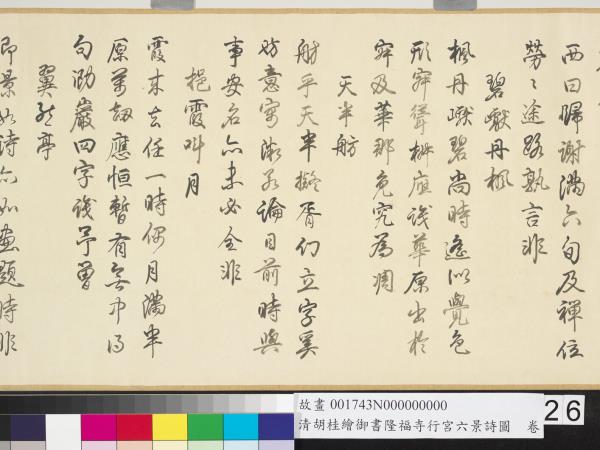 西曰歸謝滿六旬及禪位
勞〻途路孰言非
碧巘丹楓
楓丹巘碧尚時遙似覺色
形寂聳標應識華原出於
寂及華那免究為凋
天半舫
舫乎天半擬胥幻立字奚
妨意寓微若論目前時與
事安名亦未必全非
挹霞叫月
霞來去任一時偶月滿半
原萬劫應恒暫有無中得
句泐巖四字識予曾
翼然亭
即景如詩亦如畫題時非
故畫 001743N000000000
清胡桂繪御書隆福寺行宮六景詩圖 卷
26